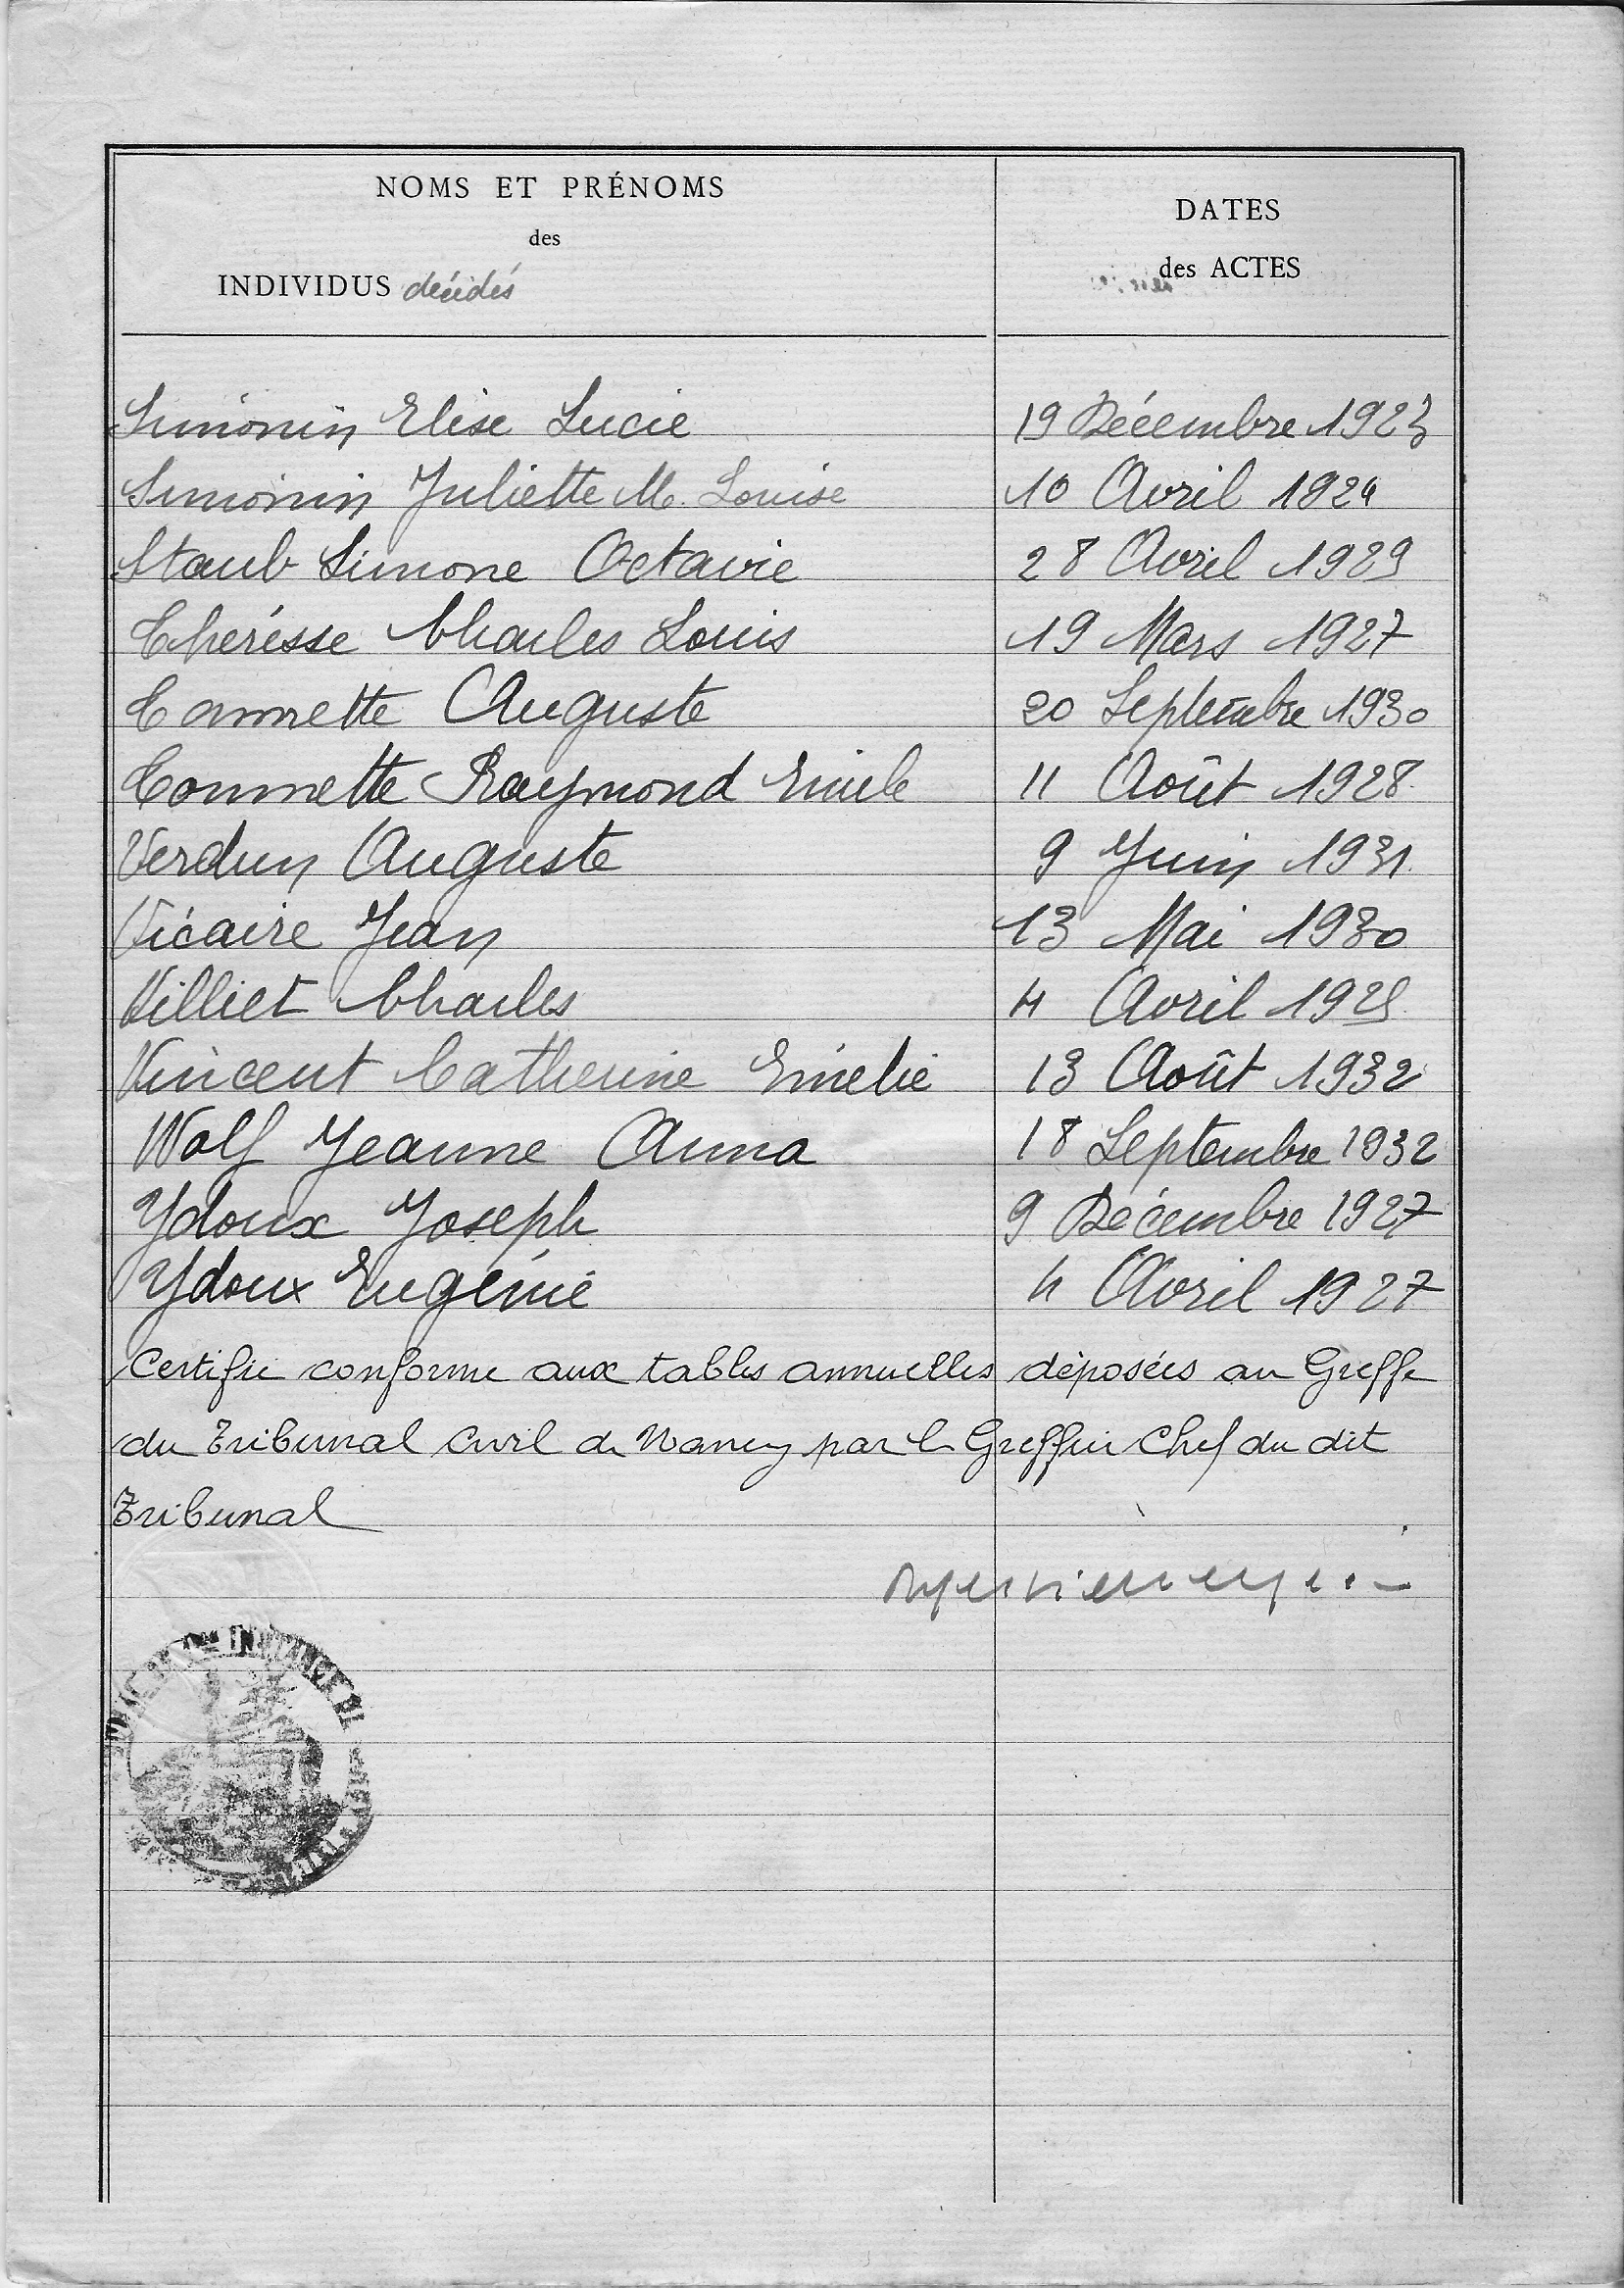 NOMS ET PRÉNOMS
des
INDIVIDUS décédés
DATES
des ACTES
Simonin Elise Lucie 19 Décembre 1923
Simonin Juliette M. Louise 10 Avril 1924
Staub Simone Octavie 28 Avril 1929
Therésse Charles Louis 19 Mars 1927
Tonnette Auguste 20 Septembre 1930
Tonnette Raymond Emile 11 Août 1928
Verdun Auguste 9 Juin 1931
Vicaire Jean 13 Mai 1930
Villiet Charles 4 Avril 1925
Vincent Catherine Emélie 13 Août 1932
Wolf Jeanne Anna 18 Septembre 1932
Ydoux Joseph 9 Décembre 1927
Ydoux Eugénie 4 Avril 1927
Certifié conforme aux tables annuelles déposées au Greffe
du Tribunal Civil de Nancy par le Greffier Chef du dit
Tribunal